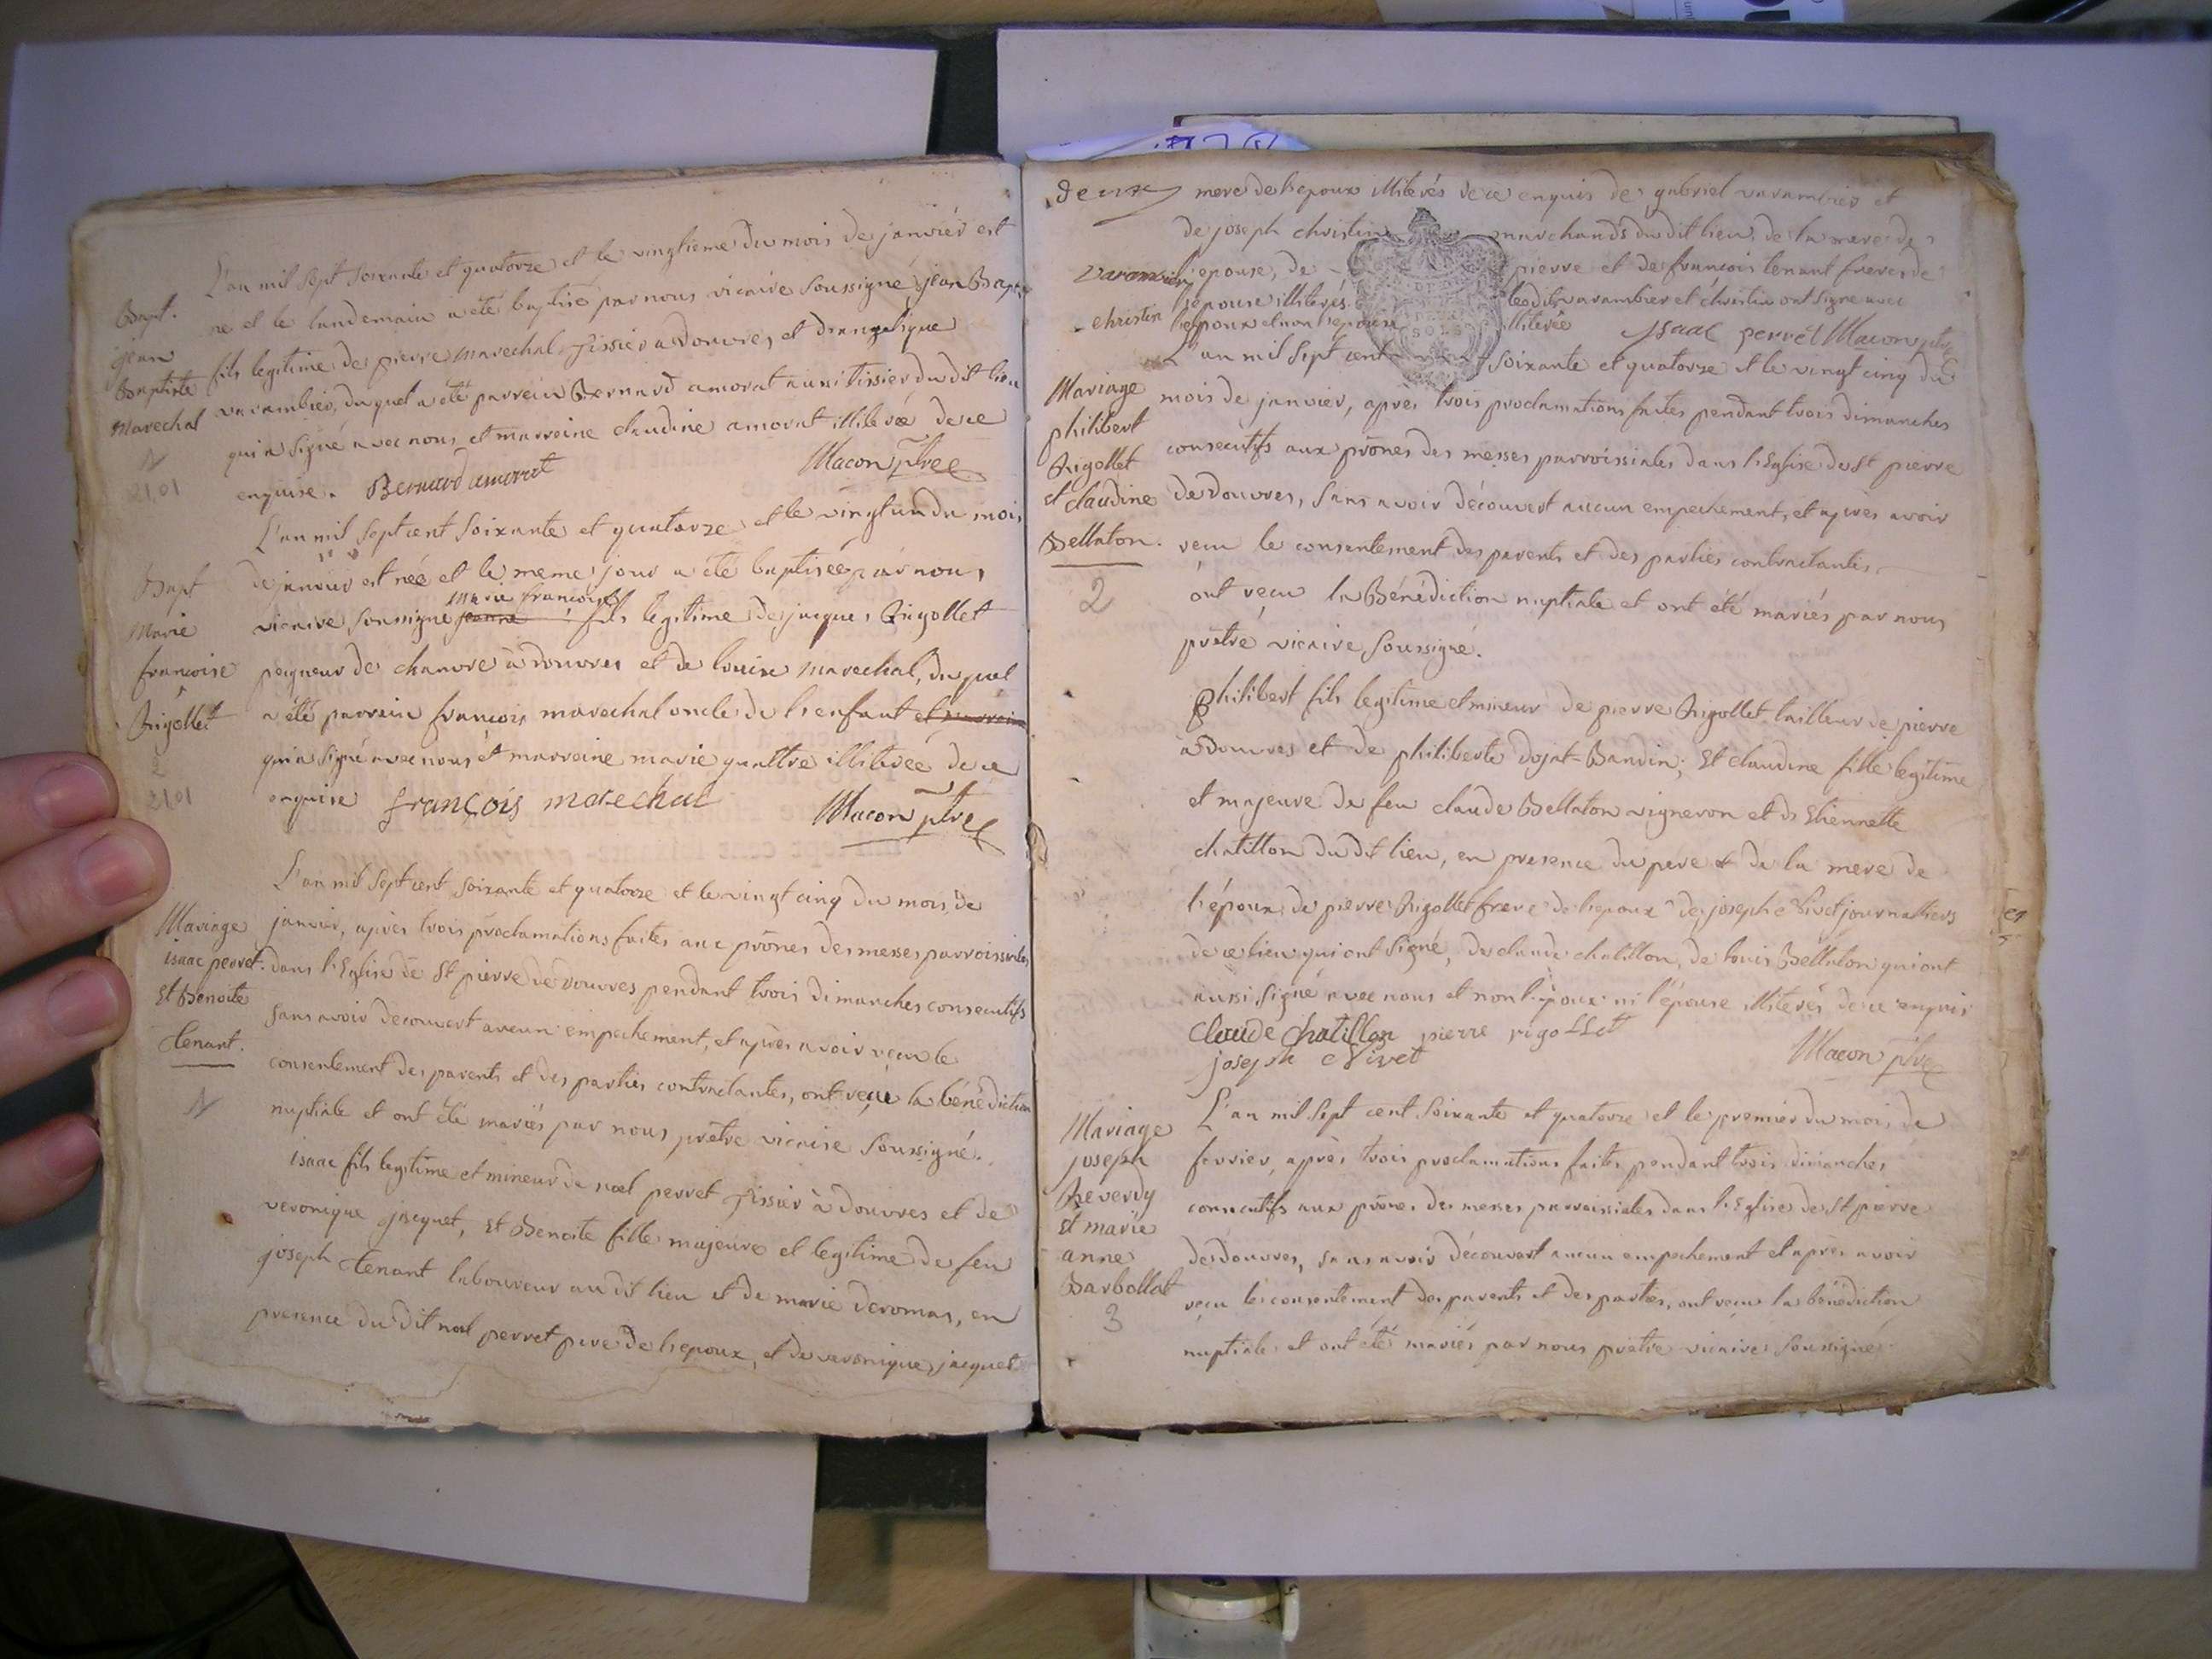 Bapt.
jean
Baptiste
Marechal
21,01
L'an mil sept soixante et quatorze et le vingtieme du mois de janvier est
né et le lendemain a été baptisé par nous vicaire soussigné jean Bapt.
fils legitime de pierre marechal tissier a douvres, et d'angelique
varambier, du quel a été parrein Bernard amorat aussi tissier du dit lieu
qui a signé avec nous et marreine claudine amorat illiterée de ce
enquise. Bernard amorat Macon ptre
Bapt
Marie
françoise
Rigollet
2
21,01
L'an mil sept cent soixante et quatorze et le vingt un du mois
de janvier est née et le meme jour a été baptisée par nous
marie françoise
vicaire soussigné jeanne fils legitime de jacques Rigollet
peigneur de chanvre à douvres et de louise marechal, du quel
a été parrein françois marechal oncle de l'enfant et marreine
qui a signé avec nous et marreine marie quattre illiterée de ce
enquise françois marechal Macon ptre
Mariage
isaac perret
Et Benoite
tenant.
L'an mil sept cent soixante et quatorze et le vingt cinq du mois de
janvier, après trois proclamations faites aux prônes des messes parroissiales
dans l'Eglise de St pierre de douvres pendant trois dimanches consecutifs
sans avoir decouvert aucun empechement, et après avoir reçu le
consentement des parents et des parties contractantes, ont reçu la bénédiction
nuptiale et ont été mariés par nous prêtre vicaire soussigné.
isaac fils legitime et mineur de noel perret tissier à douvres et de
veronique jacquet, et Benoite fille majeure et legitime de feu
joseph tenant laboureur au dit lieu et de marie deromas, en
presence du dit noel perret pere de l'epoux, et de veronique jacquet
deux
varambier
christin
mere de l'epoux illiterés de ce enquis de gabriel varambier et
de joseph christin marchands du dit lieu, de la mere de
l'epouse, de pierre et de françois tenant freres de
l'epouse illiterés. lesdits varambier et christin ont signé avec
l'epoux et non l'epouse illiterée isaac perret Macon ptre
Mariage
philibert
Rigollet
et claudine
Bellaton.
2
L'an mil sept cent soixante et quatorze et le vingt cinq du
mois de janvier, après trois proclamations faites pendant trois dimanches
consecutifs aux prônes des messes parroissiales dans l'Eglise de St pierre
de douvres, sans avoir découvert aucun empechement, et après avoir
reçu le consentement des parents et des parties contractantes,
ont reçu la Bénédiction nuptiale et ont été mariés par nous
prêtre vicaire soussigné.
philibert fils legitime et mineur de pierre Rigollet tailleur de pierre
à douvres et de philiberte dojat-Bandin; Et claudine fille legitime
et majeure de feu claude Bellaton vigneron et de Etiennette
chatillon du dit lieu, en presence du pere et de la mere de
l'époux, de pierre Rigollet frere de l'epoux de joseph Vivet journalliers
de ce lieu qui ont signé, de claude chatillon, de louis Bellaton qui ont
aussi signé avec nous et non l'époux ni l'épouse illiterés de ce enquis
claude chatillon pierre rigollet
joseph Vivet Macon ptre
Mariage
joseph
Reverdy
et marie
anne
Barbollat
3
L'an mil sept cent soixante et quatorze et le premier du mois de
fevrier, après trois proclamations faites pendant trois dimanches
consecutifs aux prônes des messes parroissiales dans l'Eglise de St pierre
de douvres, sans avoir découvert aucun empechement et après avoir
reçu le consentement des parents et des parties, ont reçu la bénédiction
nuptiale et ont été mariés par nous prêtre vicaire soussigné